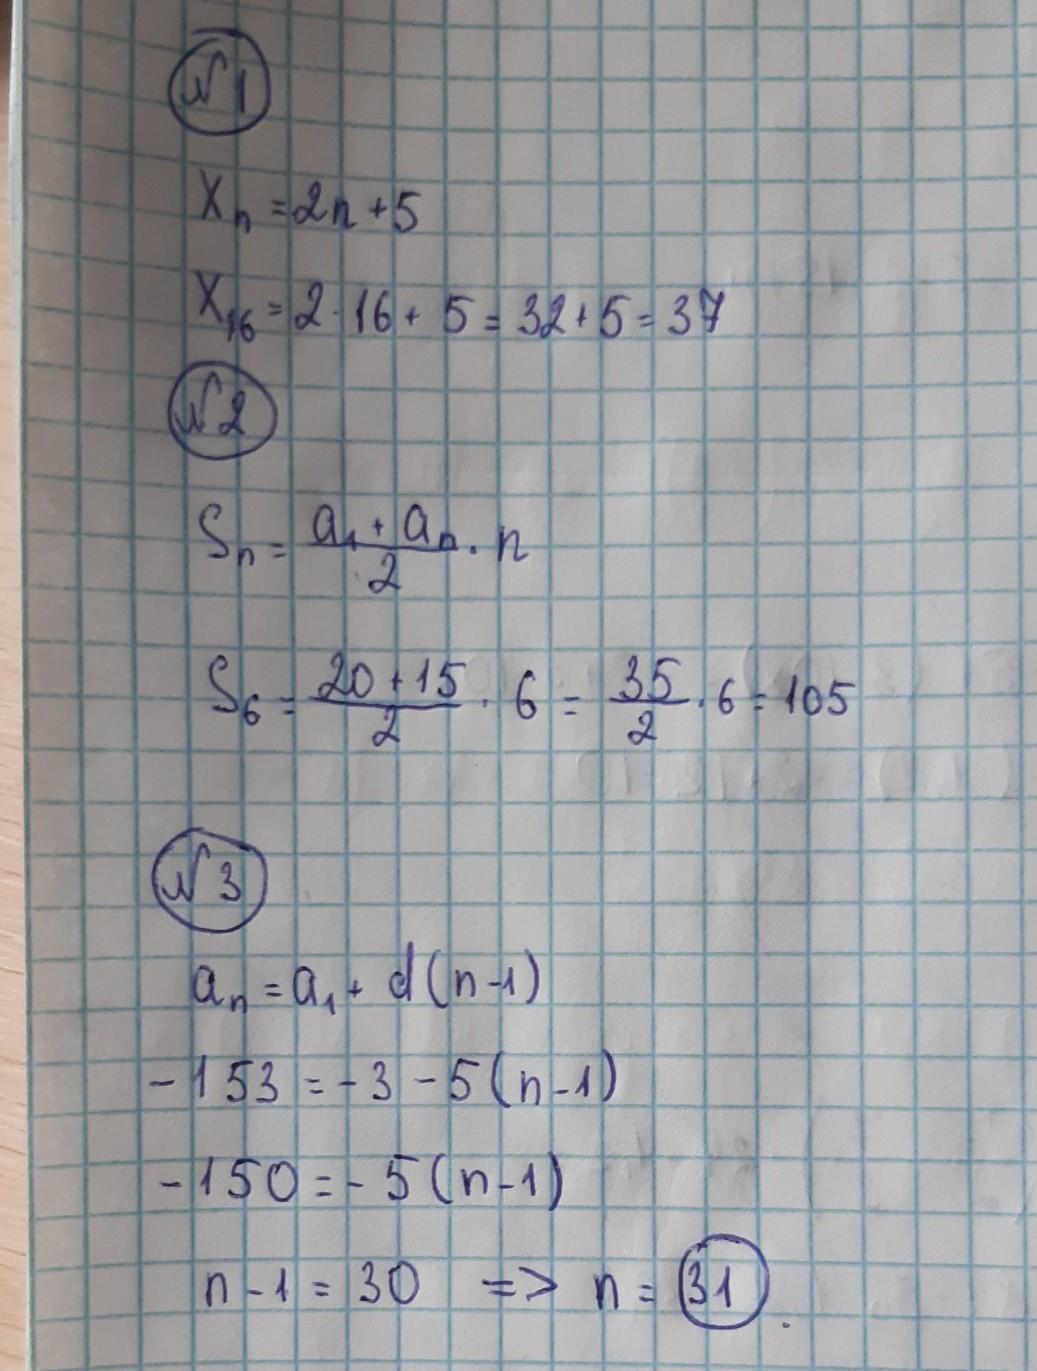 №1
Xₙ = 2n + 5
X₁₆ = 2·16 + 5 = 32 + 5 = 37
№2
Sₙ = (a₁ + aₙ)/2 · n
S₆ = (20 + 15)/2 · 6 = 35/2 · 6 = 105
№3
aₙ = a₁ + d(n-1)
-153 = -3 - 5(n-1)
-150 = -5(n-1)
n-1 = 30 => n = 31.